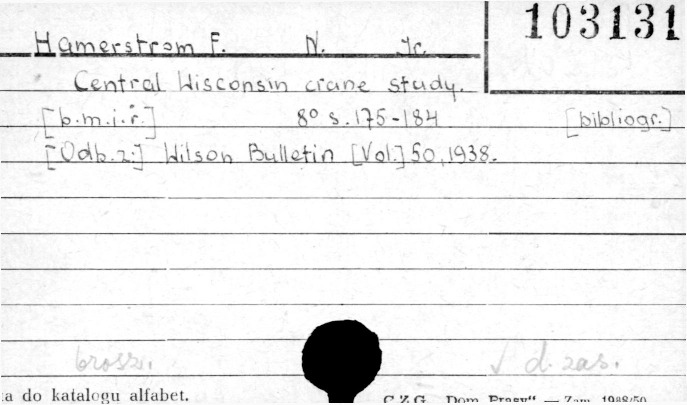 103131
Hamerstrom F. N. Jr.
Central Wisconsin crane study.
[b.m.i.r.] 8° s. 175-184 [bibliogr.]
[Odb.z:] Wilson Bulletin [Vol.] 50, 1938.
brosz. √ d. zas.
a do katalogu alfabet. C.Z.G. „Dom Prasy“ — Zam.